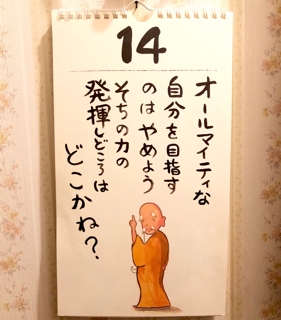 14
オールマイティな
自分を目指す
のは やめよう
そちの力の
発揮しどころは
どこかね？